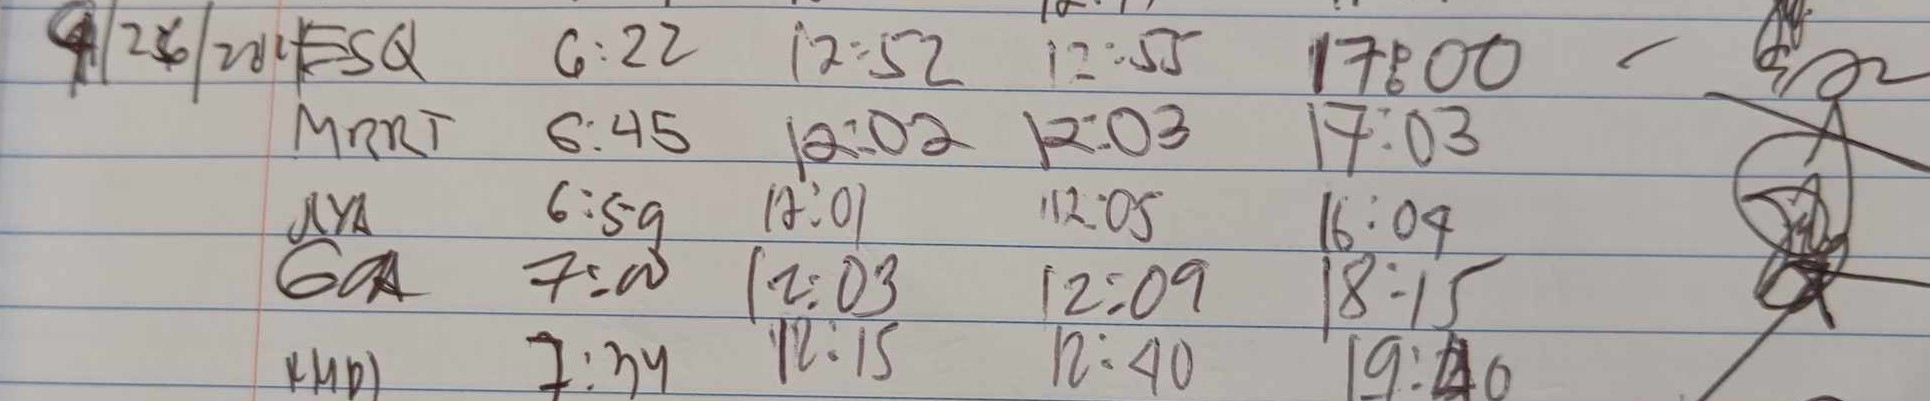 ESQ 6:22 12:52 12:55 17:00 -
MRRT 6:45 12:02 12:03 17:03
6:59 12:01 12:05 16:04
GOA 7:00 12:03 12:09 18:15
12:15 12:40 19:40